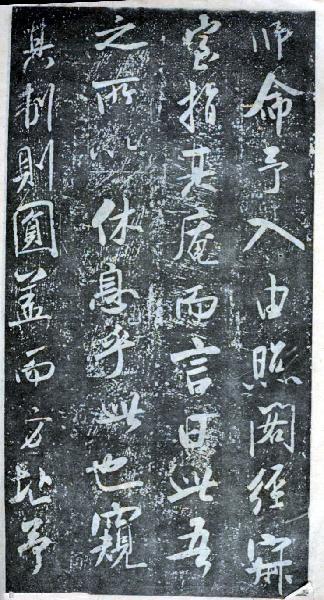 師命予入由照閣經寐
室指其庵而言曰此吾
之所以休息乎此也窺
其制則圓蓋而方址予